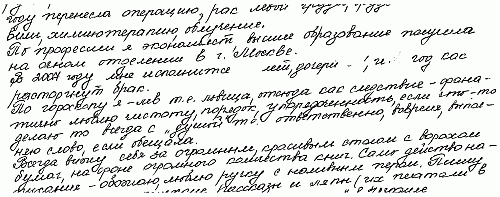 году перенесла операцию, рак левой груди,
били, химиотерапию, облучение.
По профессии я экономист высшее образование получила
на очном отделении в г. Москве.
В 2004 году мне исполнится лет, дочери - , и год как
расторгнут брак.
По гороскопу я - лев т.е. львица, отсюда как следствие - фана-
тично люблю чистоту, порядок, упорядоченность, если что-то
делаю то всегда с "душой" т.е. ответственно, вовремя, выпол-
няю слово, если обещала.
Всегда вижу себя за огромным, красивым столом с ворохом
бумаг, на фоне огромного количества книг. Само действо на-
писания - обожаю, люблю ручку с наливным пером. Пишу
рассказы и печатали в